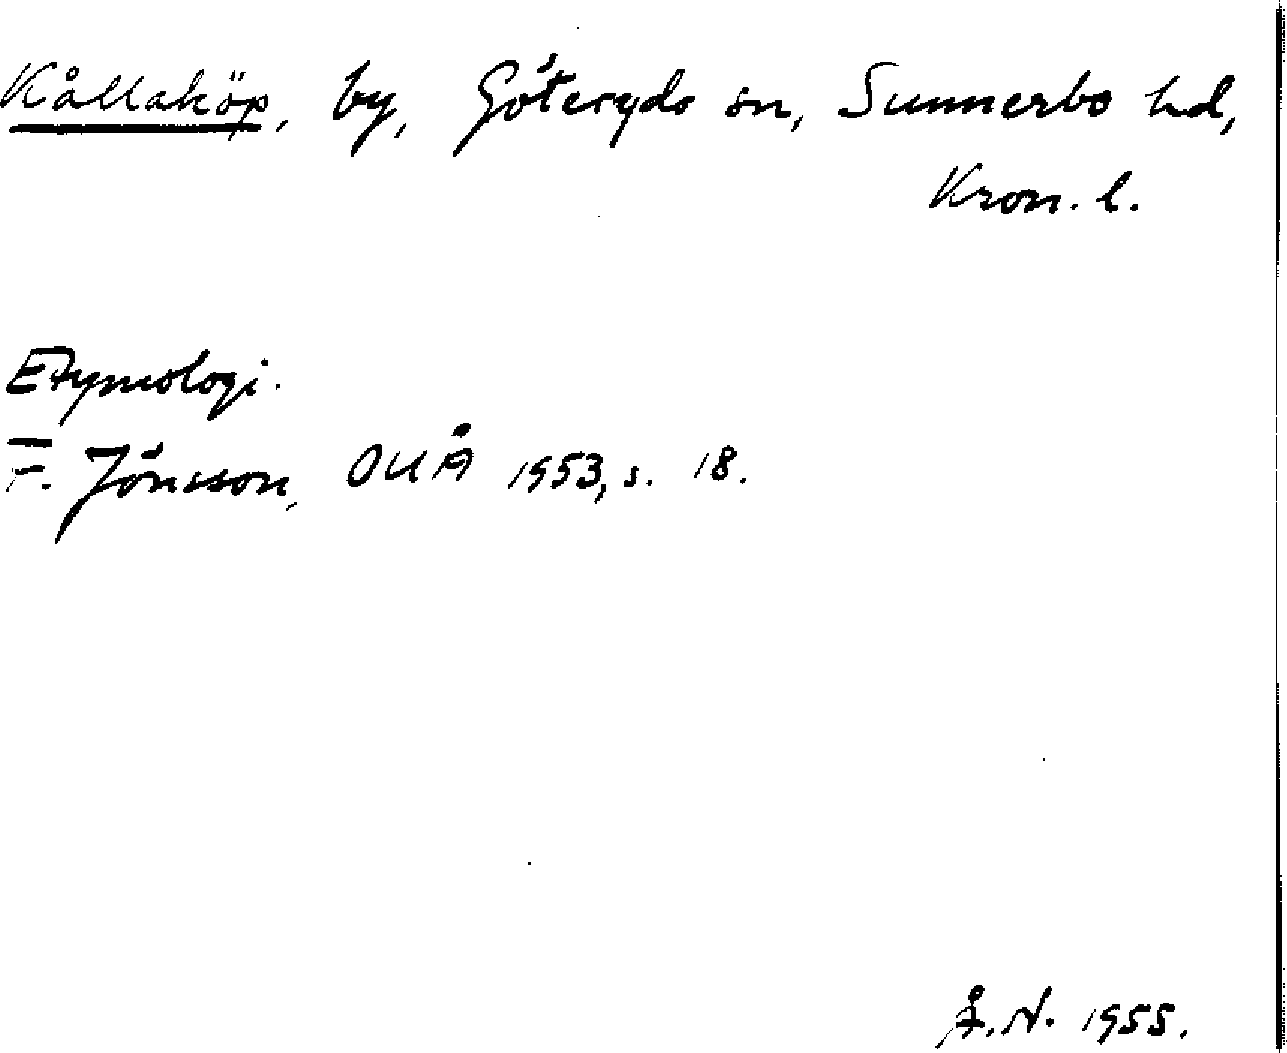 Kållaköp, by, Göteryds sn, Sunnerbo hd,
Kron. l.
Etymologi.
F. Jönsson, OUÅ 1953, s. 18.
Å. N. 1955.